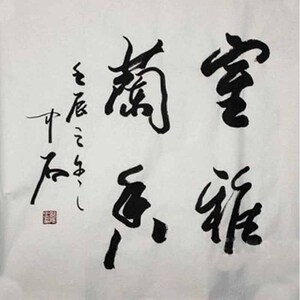 室雅
蘭香
壬辰之年
中石